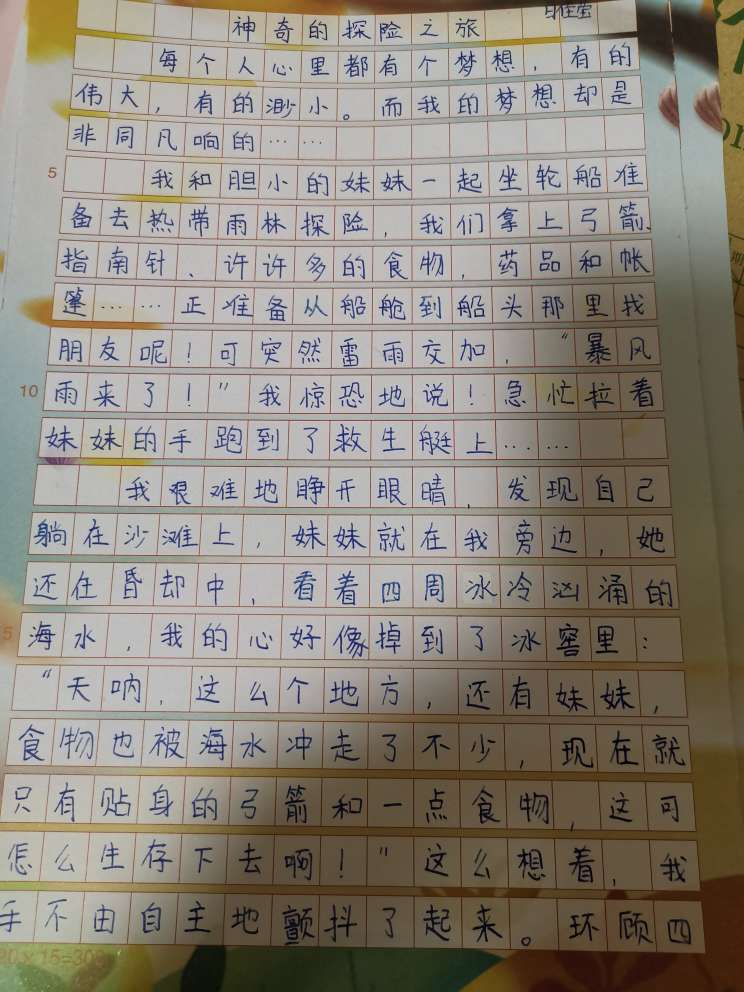 神奇的探险之旅
每个人心里都有个梦想，有的
伟大，有的渺小。而我的梦想却是
非同凡响的……
5 我和胆小的妹妹一起坐轮船准
备去热带雨林探险，我们拿上弓箭、
指南针、许许多的食物，药品和帐
篷……正准备从船舱到船头那里找
朋友呢！可突然雷雨交加，“暴风
10 雨来了！”我惊恐地说！急忙拉着
妹妹的手跑到了救生艇上……
我艰难地睁开眼睛，发现自己
躺在沙滩上，妹妹就在我旁边，她
还在昏却中，看着四周冰冷汹涌的
5 海水，我的心好像掉到了冰窖里：
“天呐，这么个地方，还有妹妹，
食物也被海水冲走了不少，现在就
只有贴身的弓箭和一点食物，这可
怎么生存下去啊！”这么想着，我
手不由自主地颤抖了起来。环顾四
20×15=300